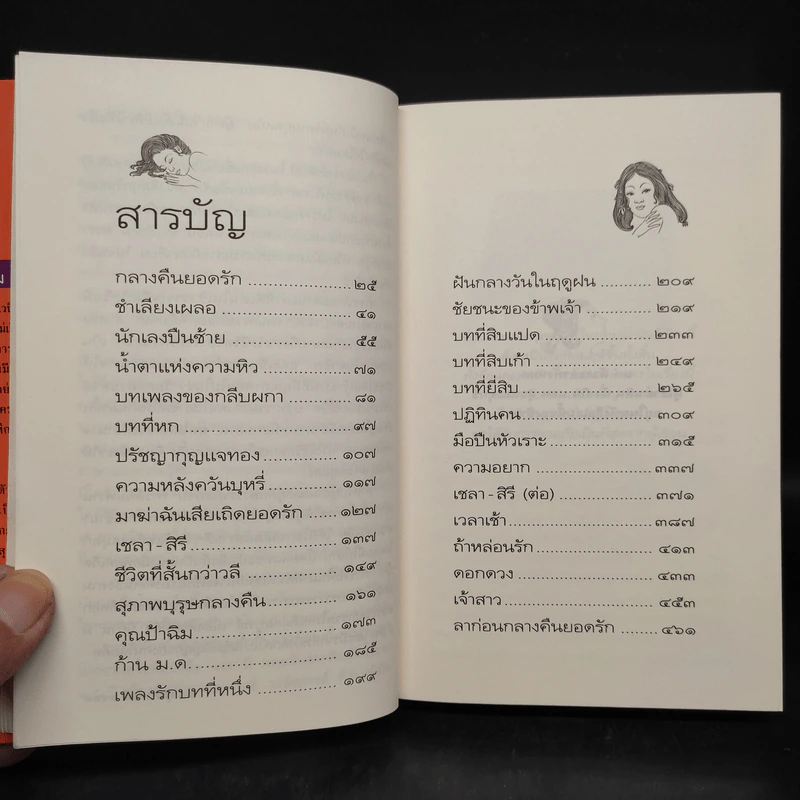 สารบัญ
กลางคืนยอดรัก ....................๒๕
ชำเลียงเผลอ ....................๔๑
นักเลงปืนซ้าย ....................๕๕
น้ำตาแห่งความหิว ....................๗๑
บทเพลงของกลีบผกา ....................๘๑
บทที่หก ....................๙๗
ปรัชญากุญแจทอง ....................๑๐๗
ความหลังควันบุหรี่ ....................๑๑๗
มาฆ่าฉันเสียเถิดยอดรัก ....................๑๒๗
เชลา - สิรี ....................๑๓๗
ชีวิตที่สั้นกว่าวลี ....................๑๔๙
สุภาพบุรุษกลางคืน ....................๑๖๑
คุณป้าฉิม ....................๑๗๓
ก้าน ม.ด. ....................๑๘๕
เพลงรักบทที่หนึ่ง ....................๑๙๙
ฝันกลางวันในฤดูฝน ....................๒๐๙
ชัยชนะของข้าพเจ้า ....................๒๑๙
บทที่สิบแปด ....................๒๓๓
บทที่สิบเก้า ....................๒๔๙
บทที่ยี่สิบ ....................๒๖๕
ปฏิทินคน ....................๓๐๙
มือปืนหัวเราะ ....................๓๑๕
ความอยาก ....................๓๓๗
เชลา - สิรี (ต่อ) ....................๓๗๑
เวลาเช้า ....................๓๘๗
ถ้าหล่อนรัก ....................๔๑๓
ดอกดวง ....................๔๓๓
เจ้าสาว ....................๔๕๓
ลาก่อนกลางคืนยอดรัก ....................๔๖๑